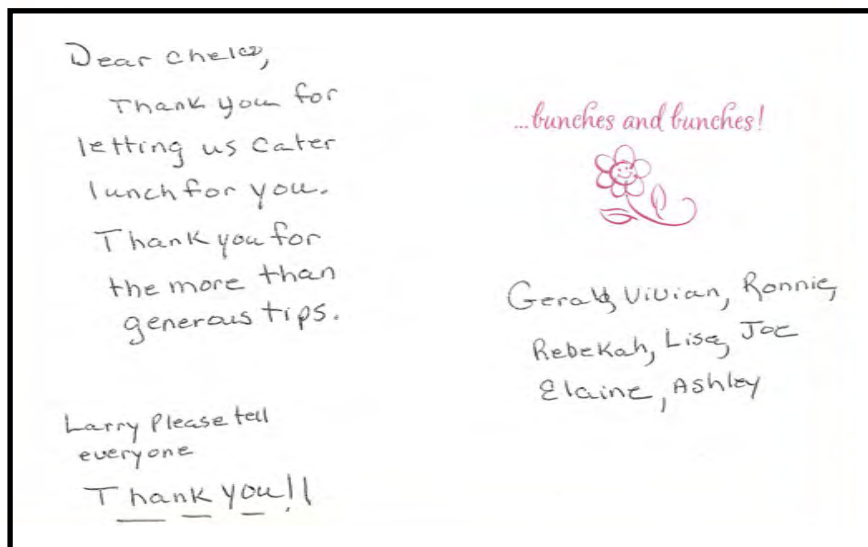 Dear Chelco,
Thank you for
letting us cater
lunch for you.
Thank you for
the more than
generous tips.
Larry Please tell
everyone
Thank you!!
...bunches and bunches!
Gerald, Vivian, Ronnie,
Rebekah, Lisa, Joe
Elaine, Ashley